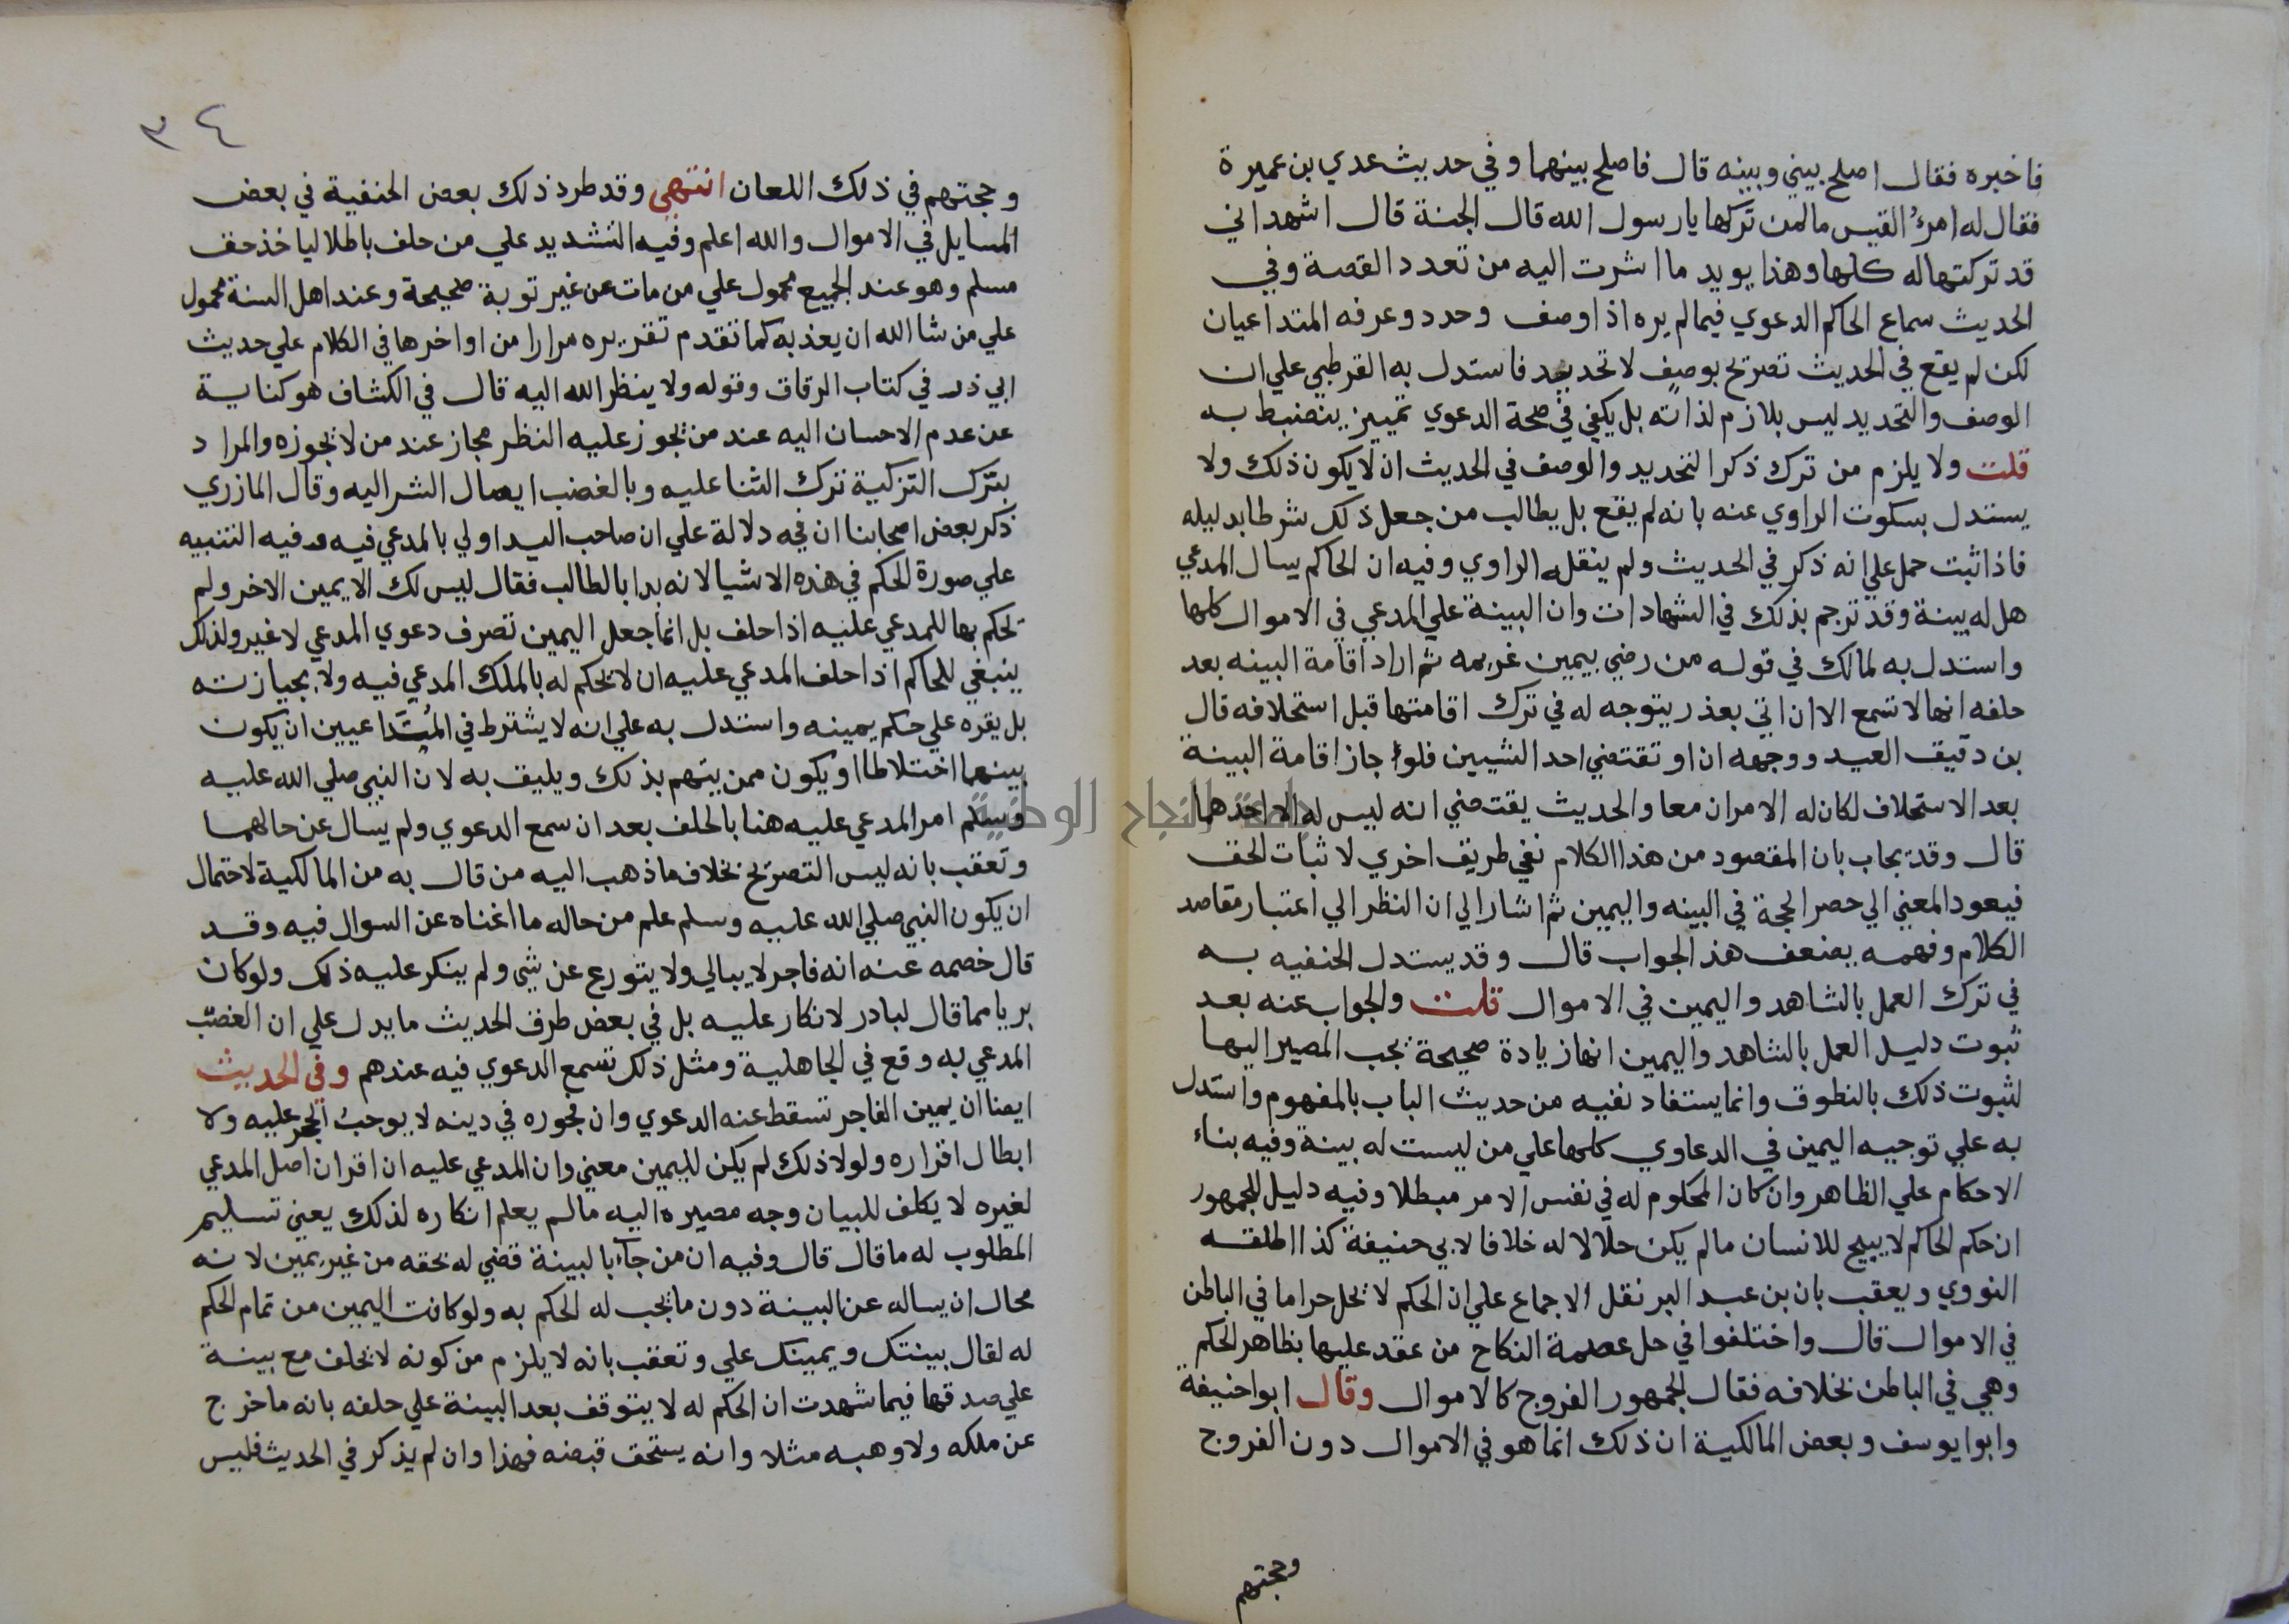 فاخبره فقال اصلح بيني وبينه قال فاصلح بينهما وفي حديث عدي بن عميرة
فقال له امرؤ القيس ما لمن تركها يا رسول الله قال الجنة قال اشهد اني
قد تركتها له كلها وهذا يويد ما اشرت اليه من تعدد القصة وفي
الحديث سماع الحاكم الدعوي فيما لم يره اذا وصف وحدد وعرفه المتداعيان
لكن لم يقع في الحديث تصريح بوصف لا تحديد فاستدل به القرطبي علي ان
الوصف والتحديد ليس بلازم لذاته بل يكفي في صحة الدعوي تمييز ينضبط به
قلت ولا يلزم من ترك ذكر التحديد والوصف في الحديث ان لا يكون ذلك ولا
يستدل بسكوت الراوي عنه بانه لم يقع بل يطالب من جعل ذلك شرطا بدليله
فاذا ثبت حمل علي انه ذكر في الحديث ولم ينقله الراوي وفيه ان الحاكم يسال المدعي
هل له بينة وقد ترجم بذلك في الشهادات وان البينة علي المدعي في الاموال كلها
واستدل به لمالك في قوله من رضي بيمين غريمه ثم اراد اقامة البينه بعد
حلفه انها لا تسمع الا ان اتي بعذر يتوجه له في ترك اقامتها قبل استحلافه قال
بن دقيق العيد ووجهه ان او تقتضي احد الشيين فلو جاز اقامة البينة
بعد الاستحلاف لكان له الامران معا والحديث يقتضي انه ليس له الا احدهما
قال وقد يجاب بان المقصود من هذا الكلام نفي طريق اخري لاثبات الحق
فيعود المعني الي حصر الحجة في البينه واليمين ثم اشار الي ان النظر الي اعتبار مقاصد
الكلام وفهمه يضعف هذ الجواب قال وقد يستدل الحنفيه به
في ترك العمل بالشاهد واليمين في الاموال قلت والجواب عنه بعد
ثبوت دليل العمل بالشاهد واليمين انها زيادة صحيحة يجب المصير اليها
لثبوت ذلك بالنطوق وانما يستفاد نفيه من حديث الباب بالمفهوم واستدل
به علي توجيه اليمين في الدعاوي كلها علي من ليست له بينة وفيه بناء
الاحكام علي الظاهر وان كان المحكوم له في نفس الامر مبطلا وفيه دليل للجمهور
ان حكم الحاكم لا يبيح للانسان ما لم يكن حلالا له خلافا لابي حنيفة كذا اطلقه
النووي ويعقب بان بن عبد البر نقل الاجماع علي ان الحكم لا يحل حراما في الباطن
في الاموال قال واختلفوا في حل عصمة النكاح من عقد عليها بظاهر الحكم
وهي في الباطن بخلافه فقال الجمهور الفروج كالاموال وقال ابوا حنيفة
وابوا يوسف وبعض المالكية ان ذلك انما هو في الاموال دون الفروج
وحجتهم
٣٤
وحجتهم في ذلك اللعان انتهي وقد طرد ذلك بعض الحنفية في بعض
المسايل في الاموال والله اعلم وفيه التشديد علي من حلف باطلا لياخذ حق
مسلم وهو عند الجميع محمول علي من مات عن غير توبة صحيحة وعند اهل السنة محمول
علي من شا الله ان يعذبه كما تقدم تقريره مرارا من اواخرها في الكلام علي حديث
ابي ذر في كتاب الرقاق وقوله ولا ينظر الله اليه قال في الكشاف هو كناية
عن عدم الاحسان اليه عند من يجوز عليه النظر مجاز عند من لا يجوزه والمراد
بترك التزكية ترك الثنا عليه وبالغضب ايصال الشر اليه وقال المازري
ذكر بعض اصحابنا ان فيه دلالة علي ان صاحب اليد اولي بالمدعي فيه وفيه التنبيه
علي صورة الحكم في هذه الاشيا لانه بدا بالطالب فقال ليس لك الا يمين الاخر ولم
يحكم بها للمدعي عليه اذا حلف بل انما جعل اليمين تصرف دعوي المدعي لا غير ولذلك
ينبغي للحاكم اذا حلف المدعي عليه ان لا يحكم له بالملك المدعي فيه ولا بحيازته
بل يقره علي حكم يمينه واستدل به علي انه لا يشترط في المُتَداعيين ان يكون
بينهما اختلاطا او يكون ممن يتهم بذلك ويليق به لان النبي صلي الله عليه
وسلم امر المدعي عليه هنا بالحلف بعد ان سمع الدعوي ولم يسال عن حالهما
وتعقب بانه ليس التصريح بخلاف ما ذهب اليه من قال به من المالكية لاحتمال
ان يكون النبي صلي الله عليه وسلم علم من حاله ما اغناه عن السوال فيه وقد
قال خصمه عنه انه فاجر لا يبالي ولا يتورع عن شي ولم ينكر عليه ذلك ولو كان
بريا مما قال لبادر لانكار عليه بل في بعض طرق الحديث ما يدل علي ان الغصب
المدعي به وقع في الجاهلية ومثل ذلك تسمع الدعوي فيه عندهم وفي الحديث
ايضا ان يمين الفاجر تسقط عنه الدعوي وان فجوره في دينه لا يوجب الحجر عليه ولا
ابطال اقراره ولولا ذلك لم يكن لليمين معني وان المدعي عليه ان اقر ان اصل المدعي
لغيره لا يكلف للبيان وجه مصيره اليه ما لم يعلم انكاره لذلك يعني تسليم
المطلوب له ما قال قال وفيه ان من جآء بالبينة قضي له بحقه من غير يمين لانه
محال ان يساله عن البينة دون ما يجب له الحكم به ولو كانت اليمين من تمام الحكم
له لقال بينتك ويمينك علي وتعقب بانه لا يلزم من كونه لا يحلف مع بينة
علي صدقها فيما شهدت ان الحكم له لا يتوقف بعد البينة علي حلفه بانه ما خرج
عن ملكه ولا وهبه مثلا وانه يستحق قبضه فهذا وان لم يذكر في الحديث فليس
جامعة النجاح الوطنية